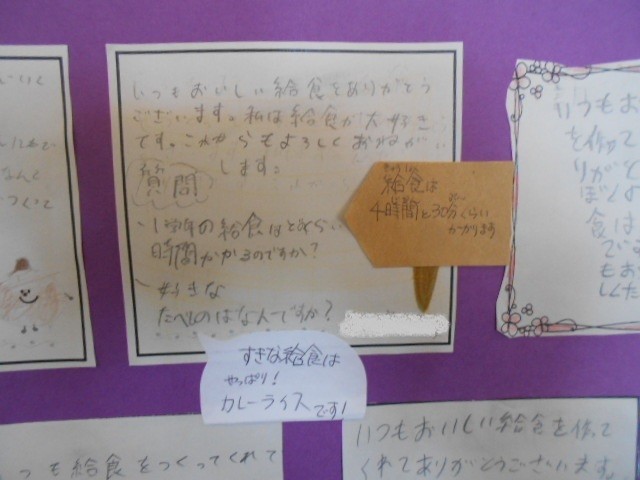 いつもおいしい給食をありがとう
ございます。私は給食が大好き
です。これからもよろしくおねがい
します。
質問
給食は
4時間と30分くらい
かかります
の給食はどれくらい
時間かかるのですか?
好きな
たべものはなんですか?
すきな給食は
やっぱり!
カレーライスです!
いつもお
を作って
りがと
ぼくは
食は
で
もお
した
つも給食をつくってくれて
いつもおいしい給食を作って
くれてありがとうございます。